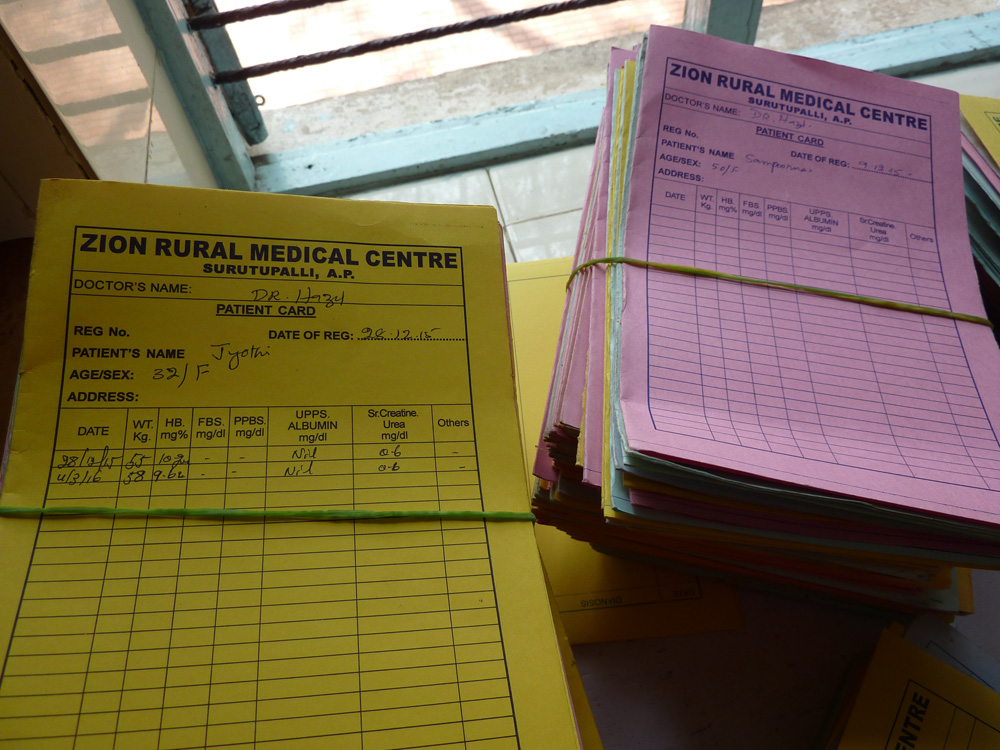 ZION RURAL MEDICAL CENTRE
SURUTUPALLI, A.P.
DOCTOR'S NAME: DR. Hazel
PATIENT CARD
REG No. DATE OF REG: 28.12.15
PATIENT'S NAME Jyothi
AGE/SEX: 32/F
ADDRESS:
DATE WT. Kg. HB. mg% FBS. mg/dl PPBS. mg/dl UPPS. ALBUMIN mg/dl Sr.Creatine. Urea mg/dl Others
28/12/15 55 - - Nil 0.6 -
4/3/16 58 - - Nil 0.6 -
ZION RURAL MEDICAL CENTRE
SURUTUPALLI, A.P.
DOCTOR'S NAME:
PATIENT CARD
REG No. DATE OF REG: 9.12.15
PATIENT'S NAME Sampoorna
AGE/SEX: 50/F
ADDRESS:
DATE WT. Kg. HB. mg% FBS. mg/dl PPBS. mg/dl UPPS. ALBUMIN mg/dl Sr.Creatine Urea mg/dl Others
NTRE